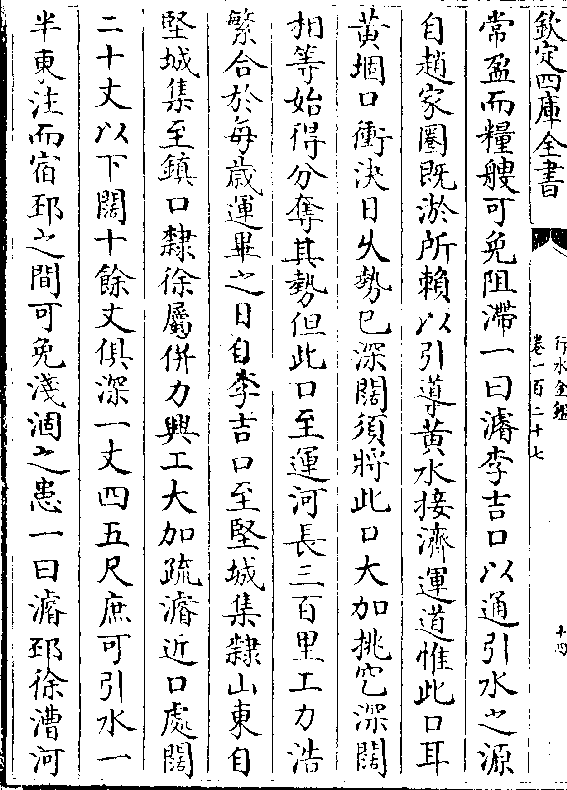 欽定四庫全書
行水金鑑
卷一百二十七
十四
常盈而糧艘可免阻滯一曰濬李吉口以通引水之源
自趙家圈既淤所賴以引導黃水接濟運道惟此口耳
黃堌口衝決日久勢已深闊須將此口大加挑穵深闊
相等始得分奪其勢但此口至運河長三百里工力浩
繁合於每歲運畢之日自李吉口至堅城集隸山東自
堅城集至鎮口隸徐屬併力興工大加疏濬近口處闊
二十丈以下闊十餘丈俱深一丈四五尺庶可引水一
半東注而宿邳之間可免淺涸之患一曰濬邳徐漕河